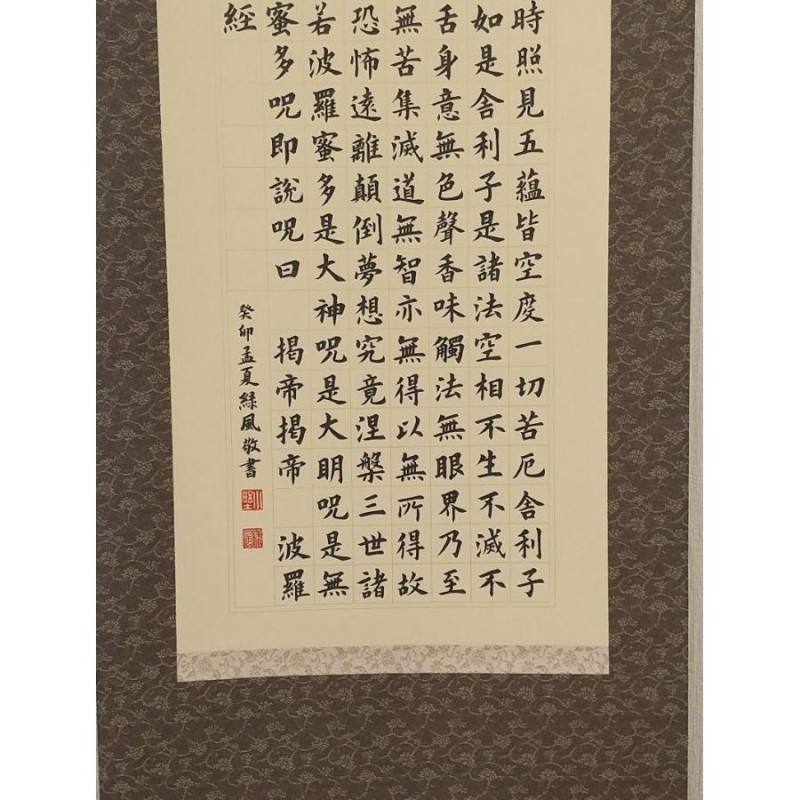 時照見五蘊皆空度一切苦厄舍利子
如是舍利子是諸法空相不生不滅不
舌身意無色聲香味觸法無眼界乃至
無苦集滅道無智亦無得以無所得故
恐怖遠離顛倒夢想究竟涅槃三世諸
若波羅蜜多是大神呪是大明呪是無
蜜多呪即說呪曰 揭帝揭帝 波羅
經
癸卯孟夏緑風敬書